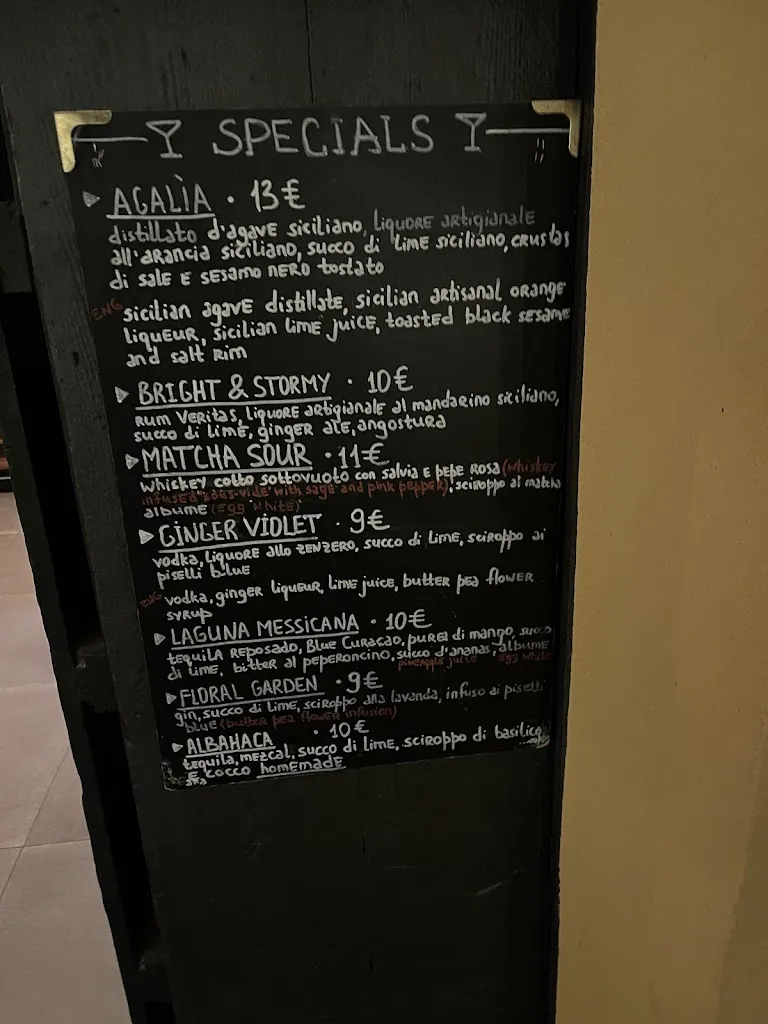 SPECIALS
AGALÌA · 13€
distillato d'agave siciliano, liquore artigianale
all'arancia siciliano, succo di lime siciliano, crustas
di sale e sesamo nero tostato
ENG sicilian agave distillate, sicilian artisanal orange
liqueur, sicilian lime juice, toasted black sesame
and salt rim
BRIGHT & STORMY · 10€
rum Veritas, liquore artigianale al mandarino siciliano,
succo di lime, ginger ale, angostura
MATCHA SOUR · 11€
whiskey cotto sottovuoto con salvia e pepe rosa (whiskey
infused "sous-vide" with sage and pink pepper), sciroppo al matcha
albume (egg white)
GINGER VIOLET · 9€
vodka, liquore allo zenzero, succo di lime, sciroppo ai
piselli blue
ENG vodka, ginger liqueur, lime juice, butter pea flower
syrup
LAGUNA MESSICANA · 10€
tequila reposado, Blue Curacao, purea di mango, succo
di lime, bitter al peperoncino, succo d'ananas, albume
pineapple juice egg white
FLORAL GARDEN · 9€
gin, succo di lime, sciroppo alla lavanda, infuso ai piselli
blue (butter pea flower infusion)
ALBAHACA · 10€
tequila, mezcal, succo di lime, sciroppo di basilico
e cocco homemade